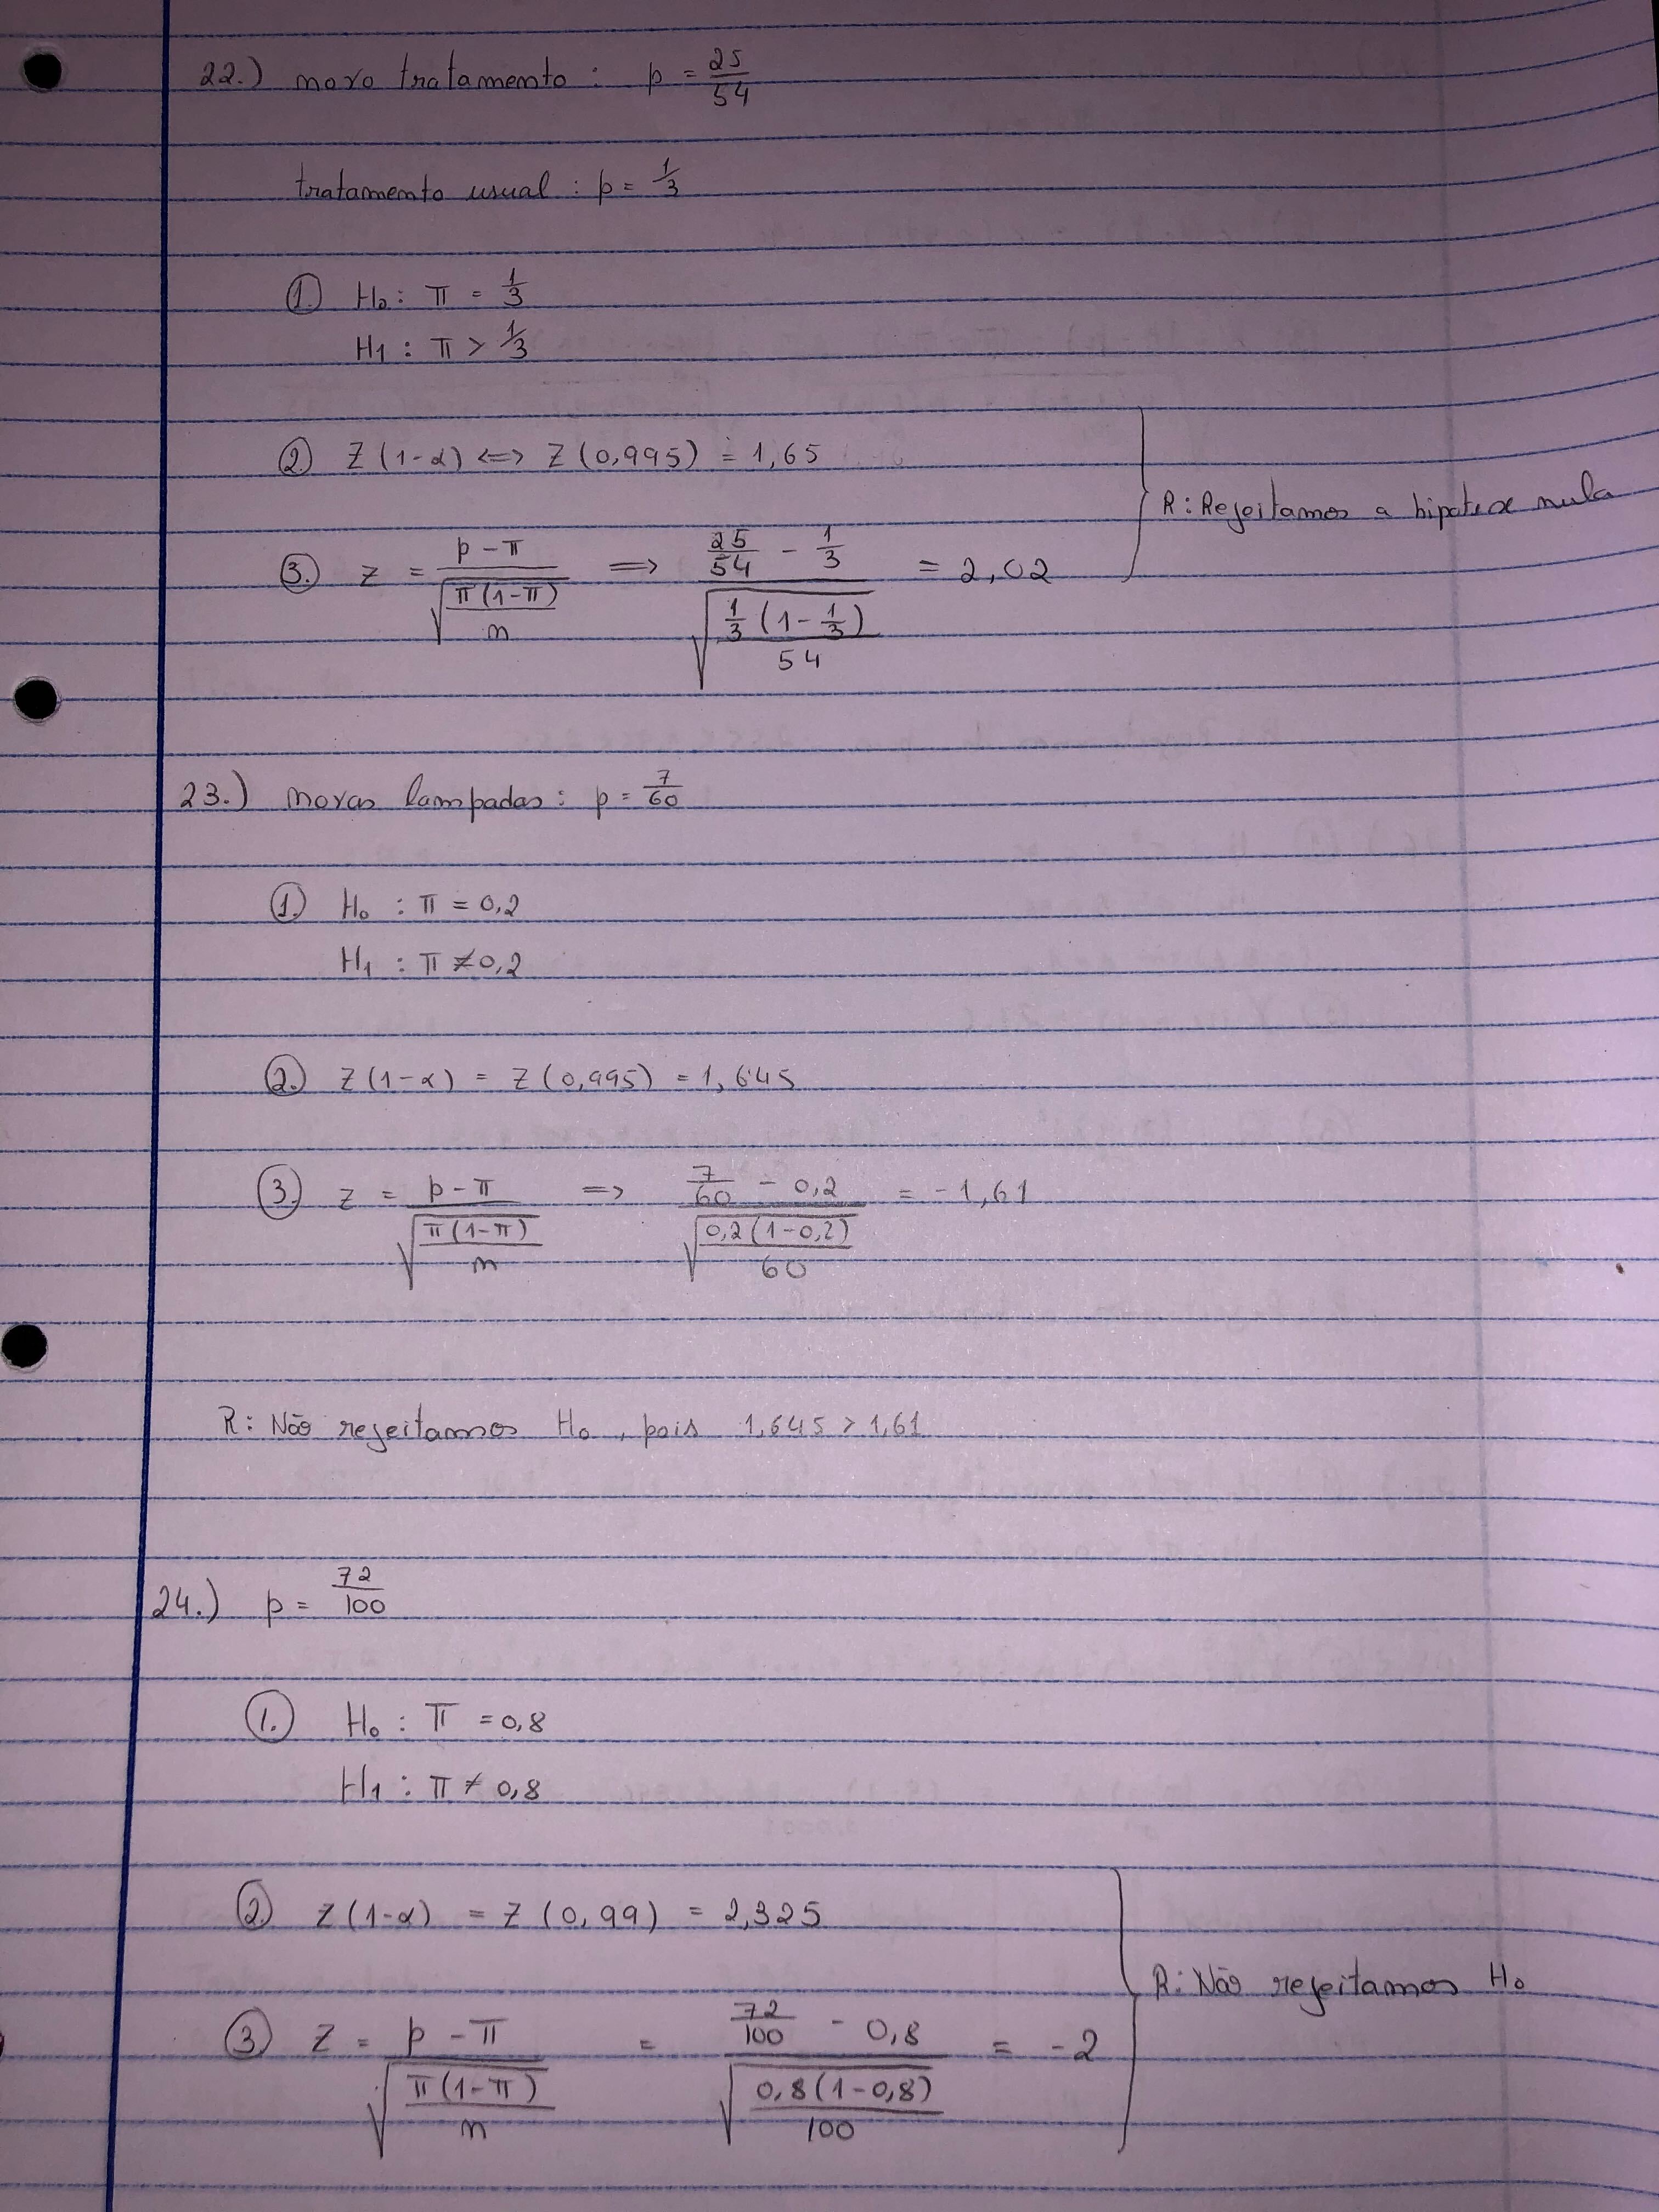 22.) novo tratamento : p = 25/54
tratamento usual : p = 1/3
1. H₀ : π = 1/3
H₁ : π > 1/3
2. Z (1-α) <=> Z (0,995) = 1,65
3. z = (p - π)/√(π(1-π)/n) => (25/54 - 1/3)/√(1/3 (1 - 1/3)/54) = 2,02
R: Rejeitamos a hipotese nula
23.) novas lampadas : p = 7/60
1. H₀ : π = 0,2
H₁ : π ≠ 0,2
2. Z (1-α) = Z (0,995) = 1,645
3. z = (p - π)/√(π(1-π)/n) => (7/60 - 0,2)/√(0,2(1-0,2)/60) = -1,61
R: Não rejeitamos H₀ , pois 1,645 > 1,61
24.) p = 72/100
1. H₀ : π = 0,8
H₁ : π ≠ 0,8
2. Z (1-α) = Z (0,99) = 2,325
3. Z = (p - π)/√(π(1-π)/n) = (72/100 - 0,8)/√(0,8(1-0,8)/100) = -2
R: Não rejeitamos H₀